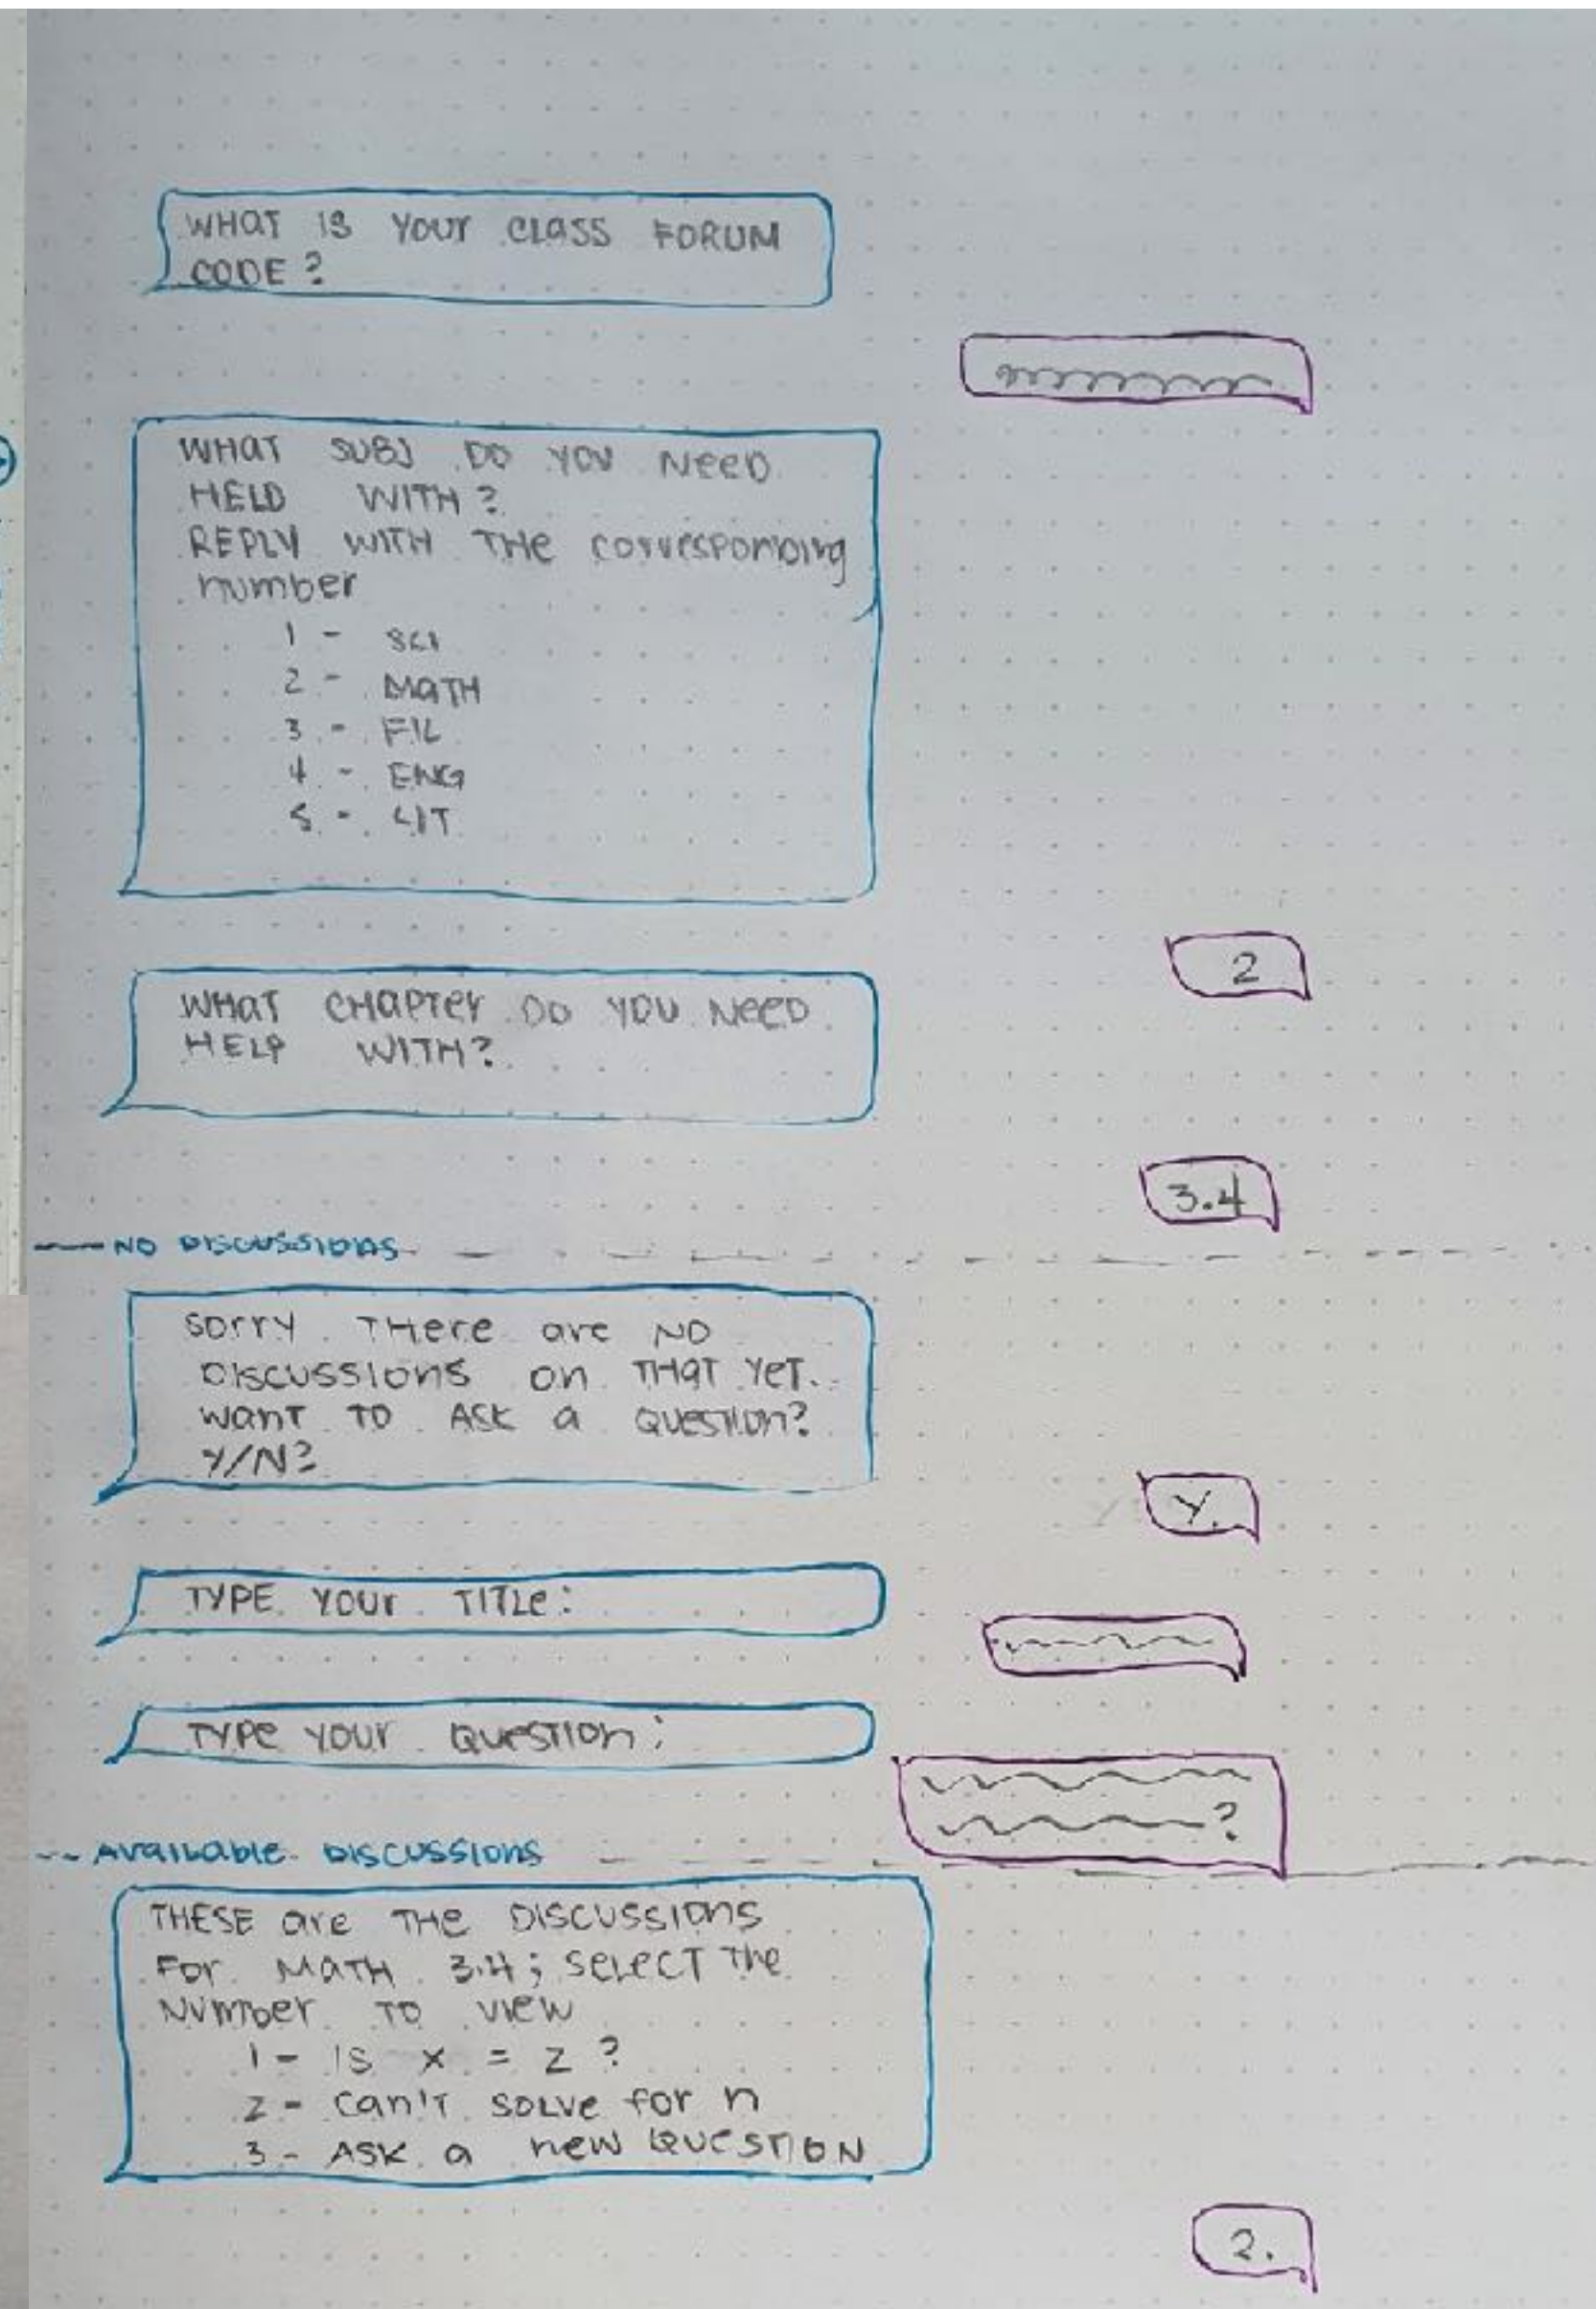 WHAT IS YOUR CLASS FORUM
CODE?
WHAT SUBJ DO YOU NEED
HELD WITH?
REPLY WITH THE corresponding
number
1 - SCI
2 - MATH
3 - FIL
4 - ENG
5 - LIT
2
WHAT CHAPTER DO YOU NEED
HELP WITH?
3.4
NO DISCUSSIONS
SORRY THERE are NO
DISCUSSIONS on THAT YET.
WANT TO ASK a QUESTION?
Y/N?
Y.
TYPE YOUR TITLE:
TYPE YOUR QUESTION:
?
AVAILABLE DISCUSSIONS
THESE are THE DISCUSSIONS
FOR MATH 3.4; SELECT THE
NUMBER TO VIEW
1 - IS x = z ?
2 - can't solve for n
3 - ASK a new QUESTION
2.